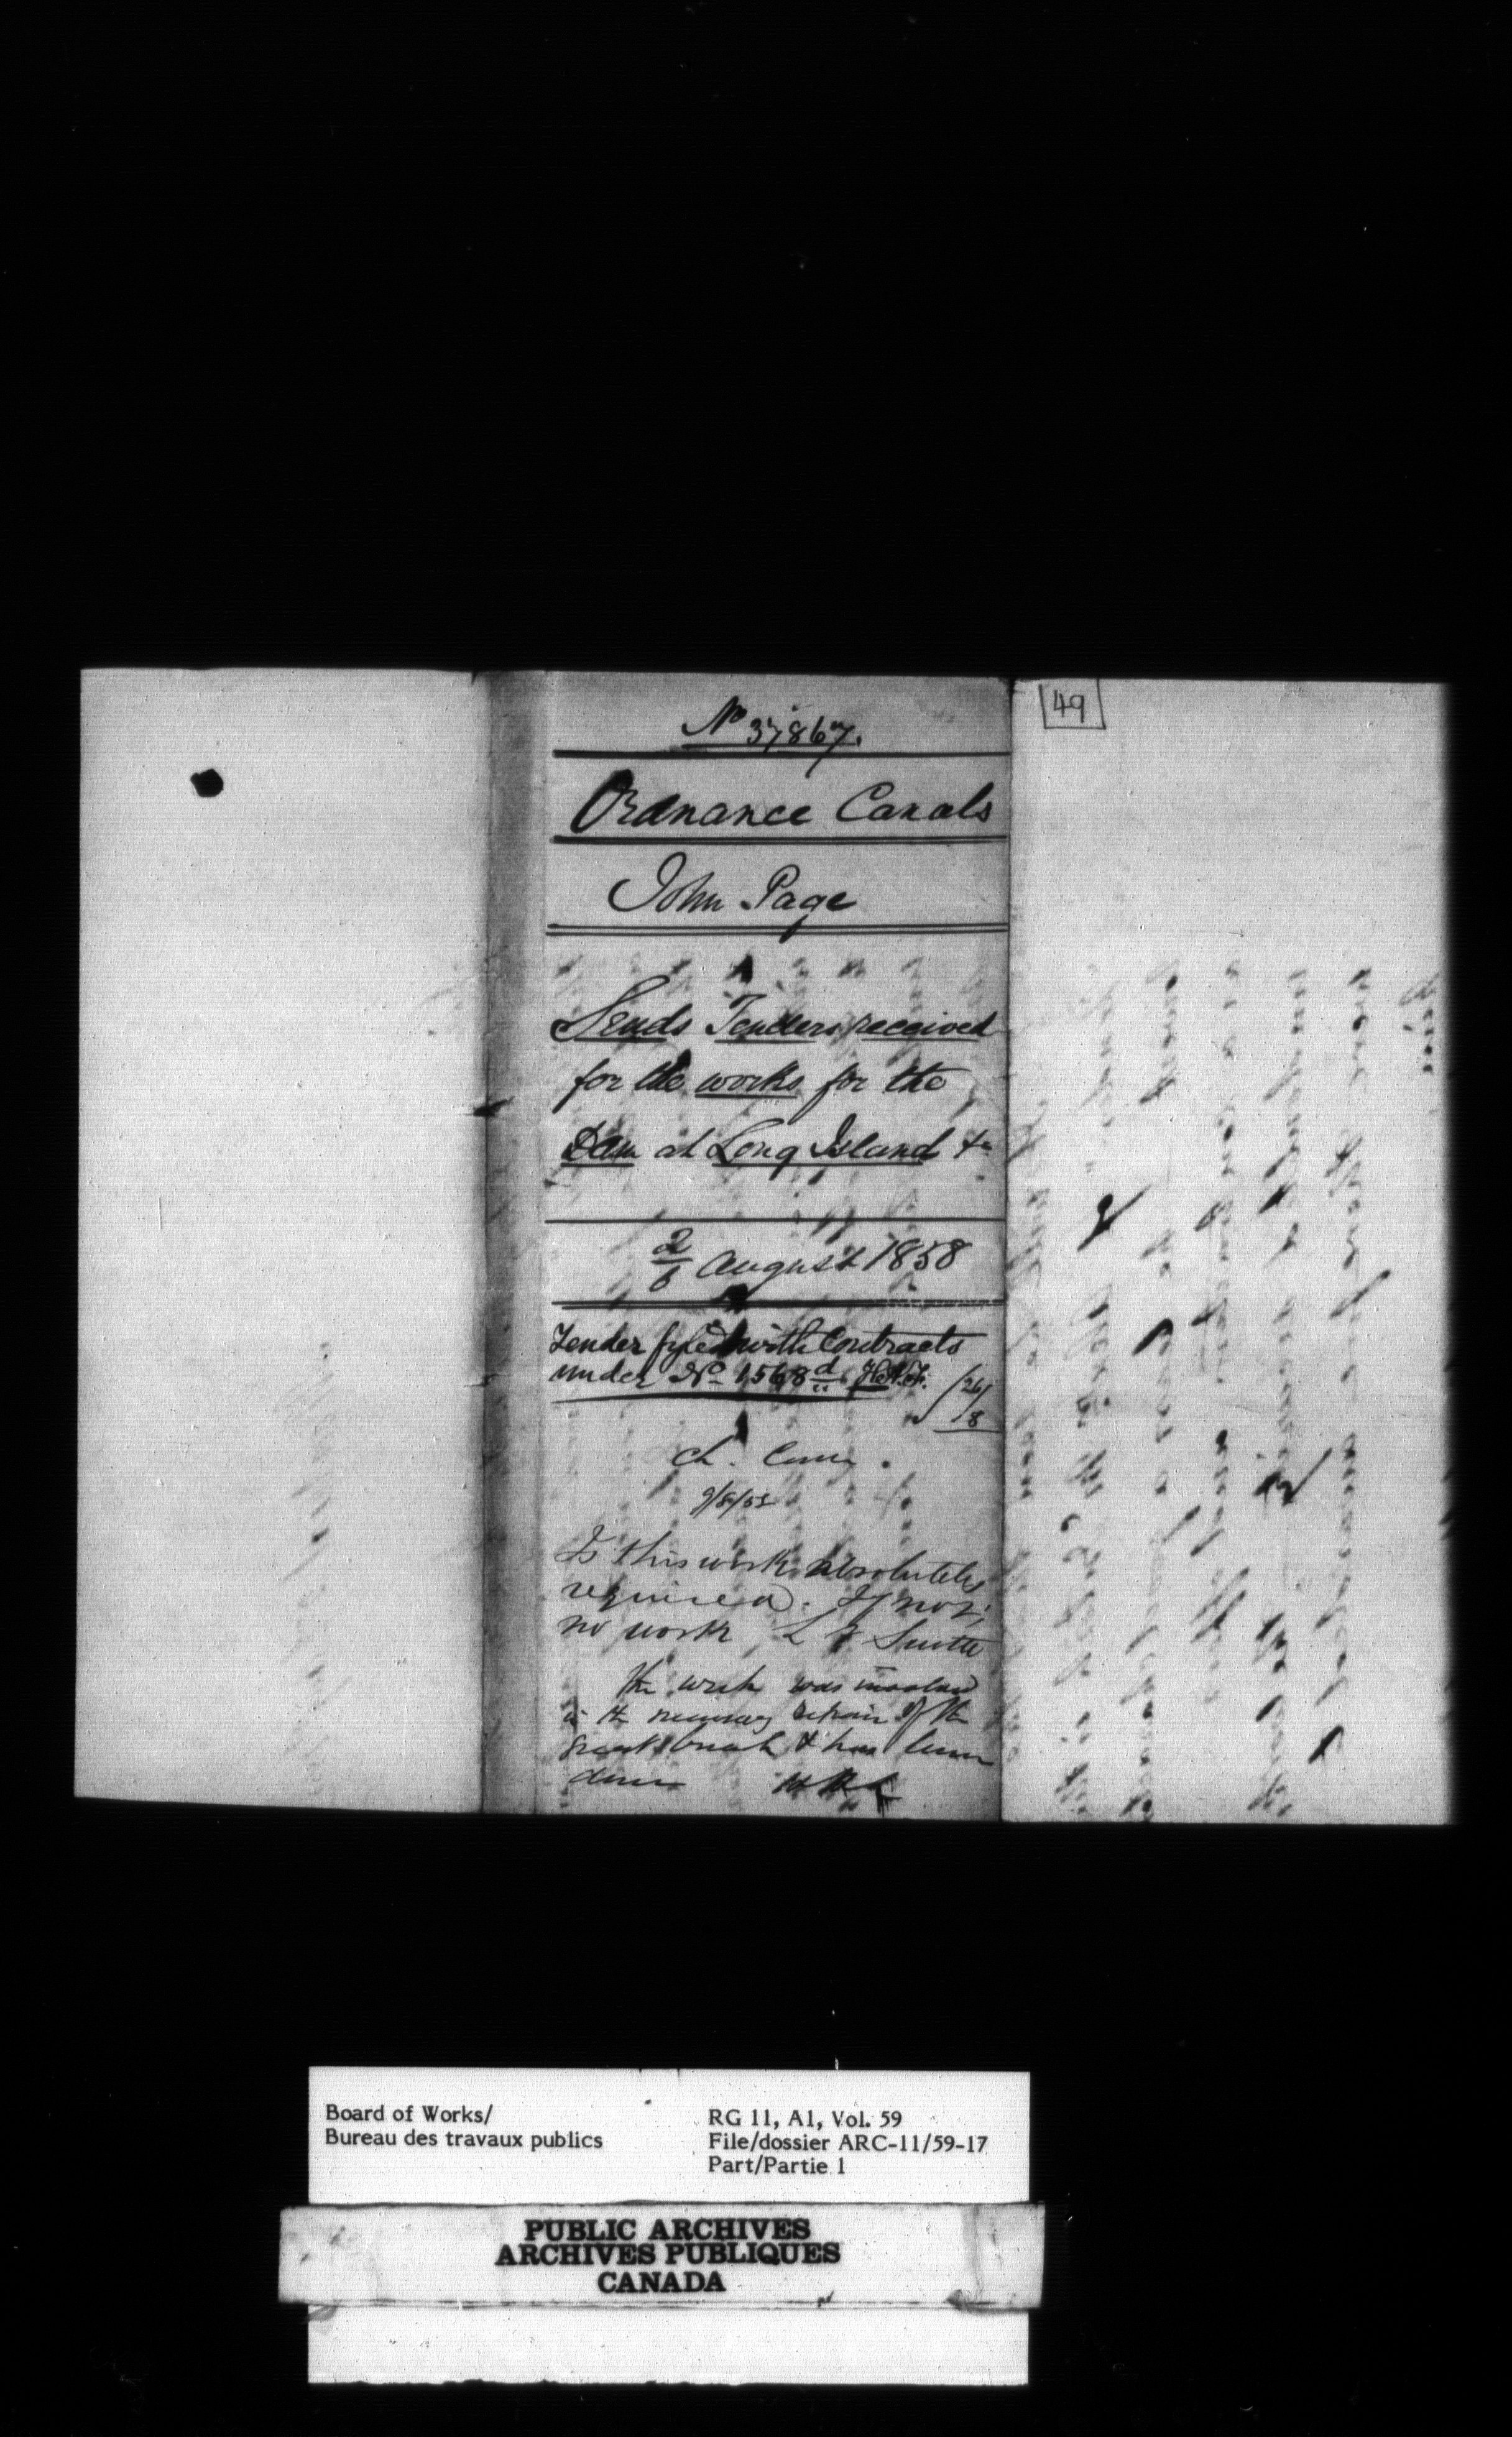 No 37867.
49
Ordnance Canals
John Page
Sends Tenders received
for the works for the
Dam at Long Island &c
2/6 August 1858
Tender fyled with Contracts
under No 1568 d H.A.F.
26/8
Ch. Com.
9/8/58
Is this work absolutely
required. If not,
no work L V Sicotte
The work was involved
in the necessary repair of the
great breach & has been
done
Board of Works/
Bureau des travaux publics
RG 11, A1, Vol. 59
File/dossier ARC-11/59-17
Part/Partie 1
PUBLIC ARCHIVES
ARCHIVES PUBLIQUES
CANADA